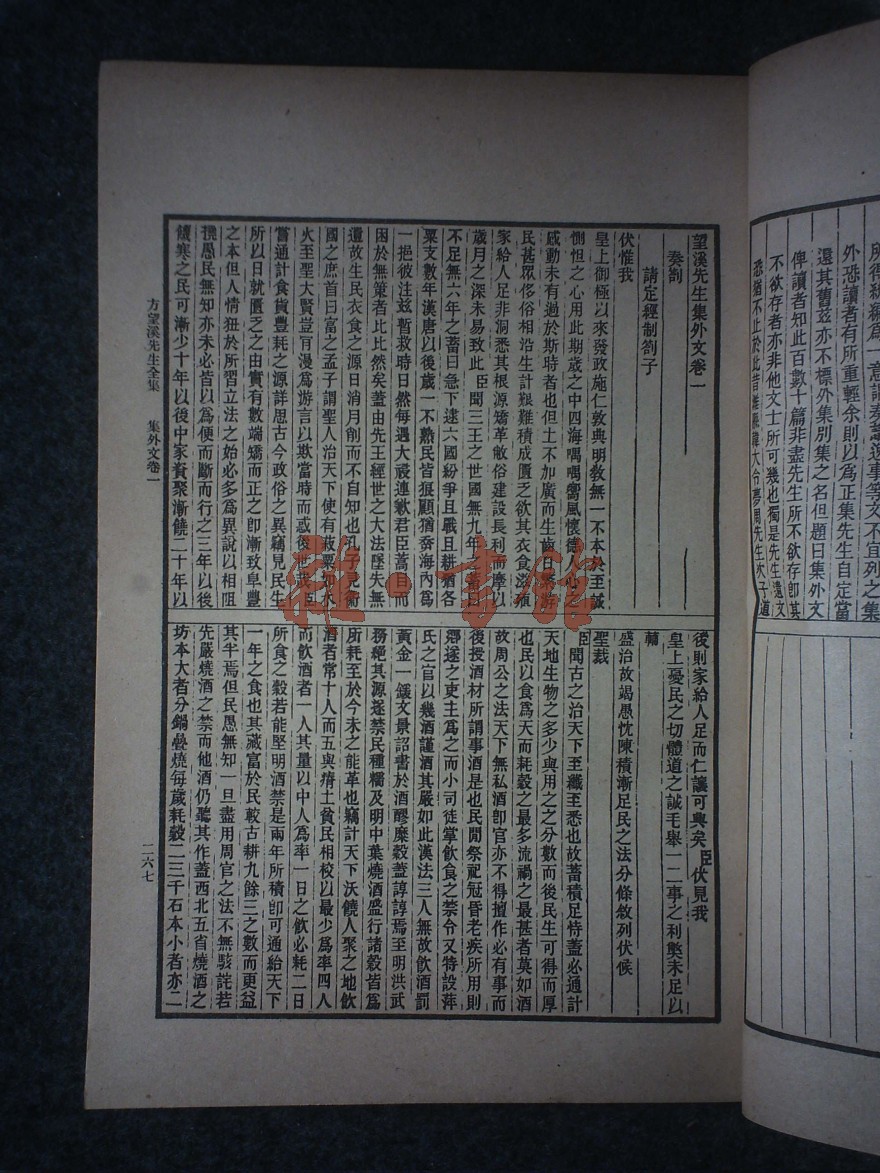 所得
外恐讀者有所重輕余則以為正集先生自定當
還其舊茲亦不標外集別集之名但題曰集外文
俾讀者知此百數十篇非盡先生所不欲存卽其
不欲存者亦非他文士所可幾也獨是先生遺文
恐猶不止於此昔
望溪先生集外文卷一
奏劄
請定經制劄子
伏惟我
皇上御極以來發政施仁敦典明敎無一不本於至誠
惻怛之心用此期歲之中四海喁喁嚮風懷德人心之
感動未有過於斯時者也但土不加廣而生齒日繁游
民甚眾侈俗相沿生計艱難積成匱乏欲其衣食滋殖
家給人足非洞悉其根源矯革敝俗建設長利而摩以
歲月之深未易致此臣聞三王之世國無九年之蓄曰
不足無六年之蓄曰急下逮六國紛爭且戰且耕猶各
粟支數年漢唐以後歲一不熟民皆狼顧猶幸海內為
一挹彼注茲暫救時日然每遇大祲連歉君臣蒿目而
困於無策者比比然矣蓋由先王經世之大法墜失無
遺故生民衣食之源日消月削而不自知也孔子見衞
國之庶首曰富之孟子謂聖人治天下使有菽粟如水
火至聖大賢豈肯漫為游言以欺當時而惑後世哉臣
嘗通計食貨豐耗之源詳思古今政俗之異竊見民生
所以日就匱乏之由實有數端矯而正之卽漸致阜豐
之本但人情狃於所習立法之始必多為異說以相阻
撓愚民無知亦未必皆以為便而斷而行之三年以後
饑寒之民可漸少十年以後中家資聚漸饒二十年以
後則家給人足而仁讓可興矣臣伏見我
皇上憂民之切體道之誠毛舉一二事之利獘未足以
輔
盛治故竭愚忱陳積漸足民之法分條敘列伏候
聖裁
臣聞古之治天下至纖至悉也故蓄積足恃蓋必通計
天地生物之多少與用之之分數而後民生可得而厚
也民以食為天而耗穀之最多流禍之最甚者莫如酒
故周公之法天下無私酒卽官亦不得擅作必有事而
後授酒材所謂事酒是也民閒祭祀冠昏老疾所用則
鄉遂之吏主為之而小司徒掌飲食之禁令又特設萍
氏之官以幾酒謹酒其嚴如此漢法三人無故飲酒罰
黃金一鍰文景詔書於酒醪糜穀蓋諄諄焉至明洪武
務絕其源遂禁民種糯及明中葉燒酒盛行諸穀皆為
所耗至於今未之能革也竊計天下沃饒人聚之地飲
酒者常十人而五與瘠土貧民相校以最少為率四人
而飲酒者一人其量以中人為率一日之飲必耗二日
所食之穀若能堅明酒禁是兩年所積卽可通給天下
一年之食也其藏富於民較古耕九餘三之數而更益
其半焉但民愚無知一旦盡用周官之法不無駭詫若
先嚴燒酒之禁而他酒仍聽其作蓋西北五省燒酒之
坊本大者分鍋疊燒每歲耗穀二三千石本小者亦二
方望溪先生全集 集外文卷一
二六七
雜·書館